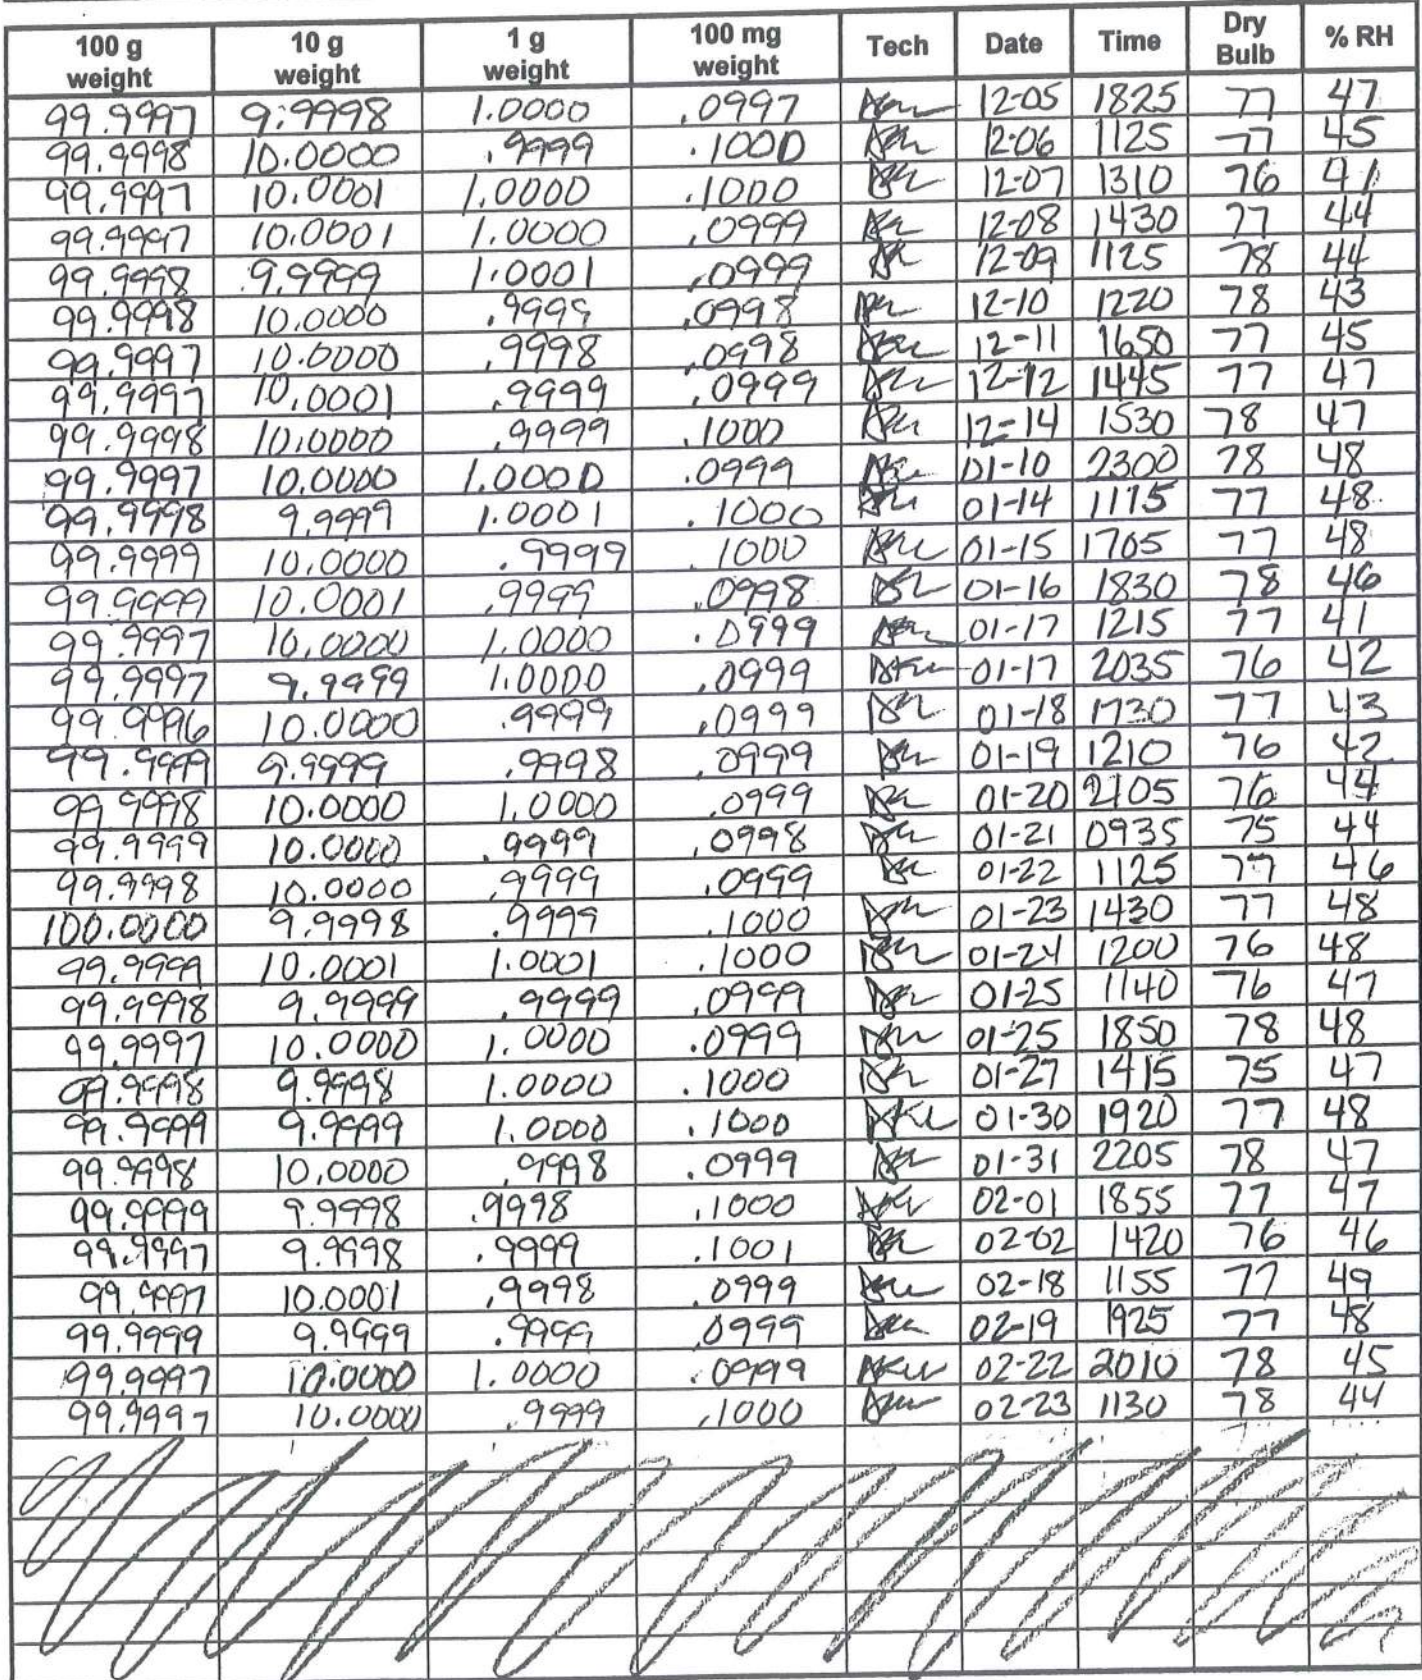 100 g weight 10 g weight 1 g weight 100 mg weight Tech Date Time Dry Bulb % RH
99.9997 9.9998 1.0000 .0997 12-05 1825 77 47
99.9998 10.0000 .9999 .1000 12-06 1125 77 45
99.9997 10.0001 1.0000 .1000 12-07 1310 76 41
99.9997 10.0001 1.0000 .0999 12-08 1430 77 44
99.9998 9.9999 1.0001 .0999 12-09 1125 78 44
99.9998 10.0000 .9999 .0998 12-10 1220 78 43
99.9997 10.0000 .9998 .0998 12-11 1650 77 45
99.9997 10.0001 .9999 .0999 12-12 1445 77 47
99.9998 10.0000 .9999 .1000 12-14 1530 78 47
99.9997 10.0000 1.0000 .0999 01-10 2300 78 48
99.9998 9.9999 1.0001 .1000 01-14 1115 77 48
99.9999 10.0000 .9999 .1000 01-15 1705 77 48
99.9999 10.0001 .9999 .0998 01-16 1830 78 46
99.9997 10.0000 1.0000 .0999 01-17 1215 77 41
99.9997 9.9999 1.0000 .0999 01-17 2035 76 42
99.9996 10.0000 .9999 .0999 01-18 1730 77 43
99.9999 9.9999 .9998 .0999 01-19 1210 76 42
99.9998 10.0000 1.0000 .0999 01-20 2105 76 44
99.9999 10.0000 .9999 .0998 01-21 0935 75 44
99.9998 10.0000 .9999 .0999 01-22 1125 77 46
100.0000 9.9998 .9999 .1000 01-23 1430 77 48
99.9999 10.0001 1.0001 .1000 01-24 1200 76 48
99.9998 9.9999 .9999 .0999 01-25 1140 76 47
99.9997 10.0000 1.0000 .0999 01-25 1850 78 48
99.9998 9.9998 1.0000 .1000 01-27 1415 75 47
99.9999 9.9999 1.0000 .1000 01-30 1920 77 48
99.9998 10.0000 .9998 .0999 01-31 2205 78 47
99.9999 9.9998 .9998 .1000 02-01 1855 77 47
99.9997 9.9998 .9999 .1001 02-02 1420 76 46
99.9997 10.0001 .9998 .0999 02-18 1155 77 49
99.9999 9.9999 .9999 .0999 02-19 1925 77 48
99.9997 10.0000 1.0000 .0999 02-22 2010 78 45
99.9997 10.0000 .9999 .1000 02-23 1130 78 44